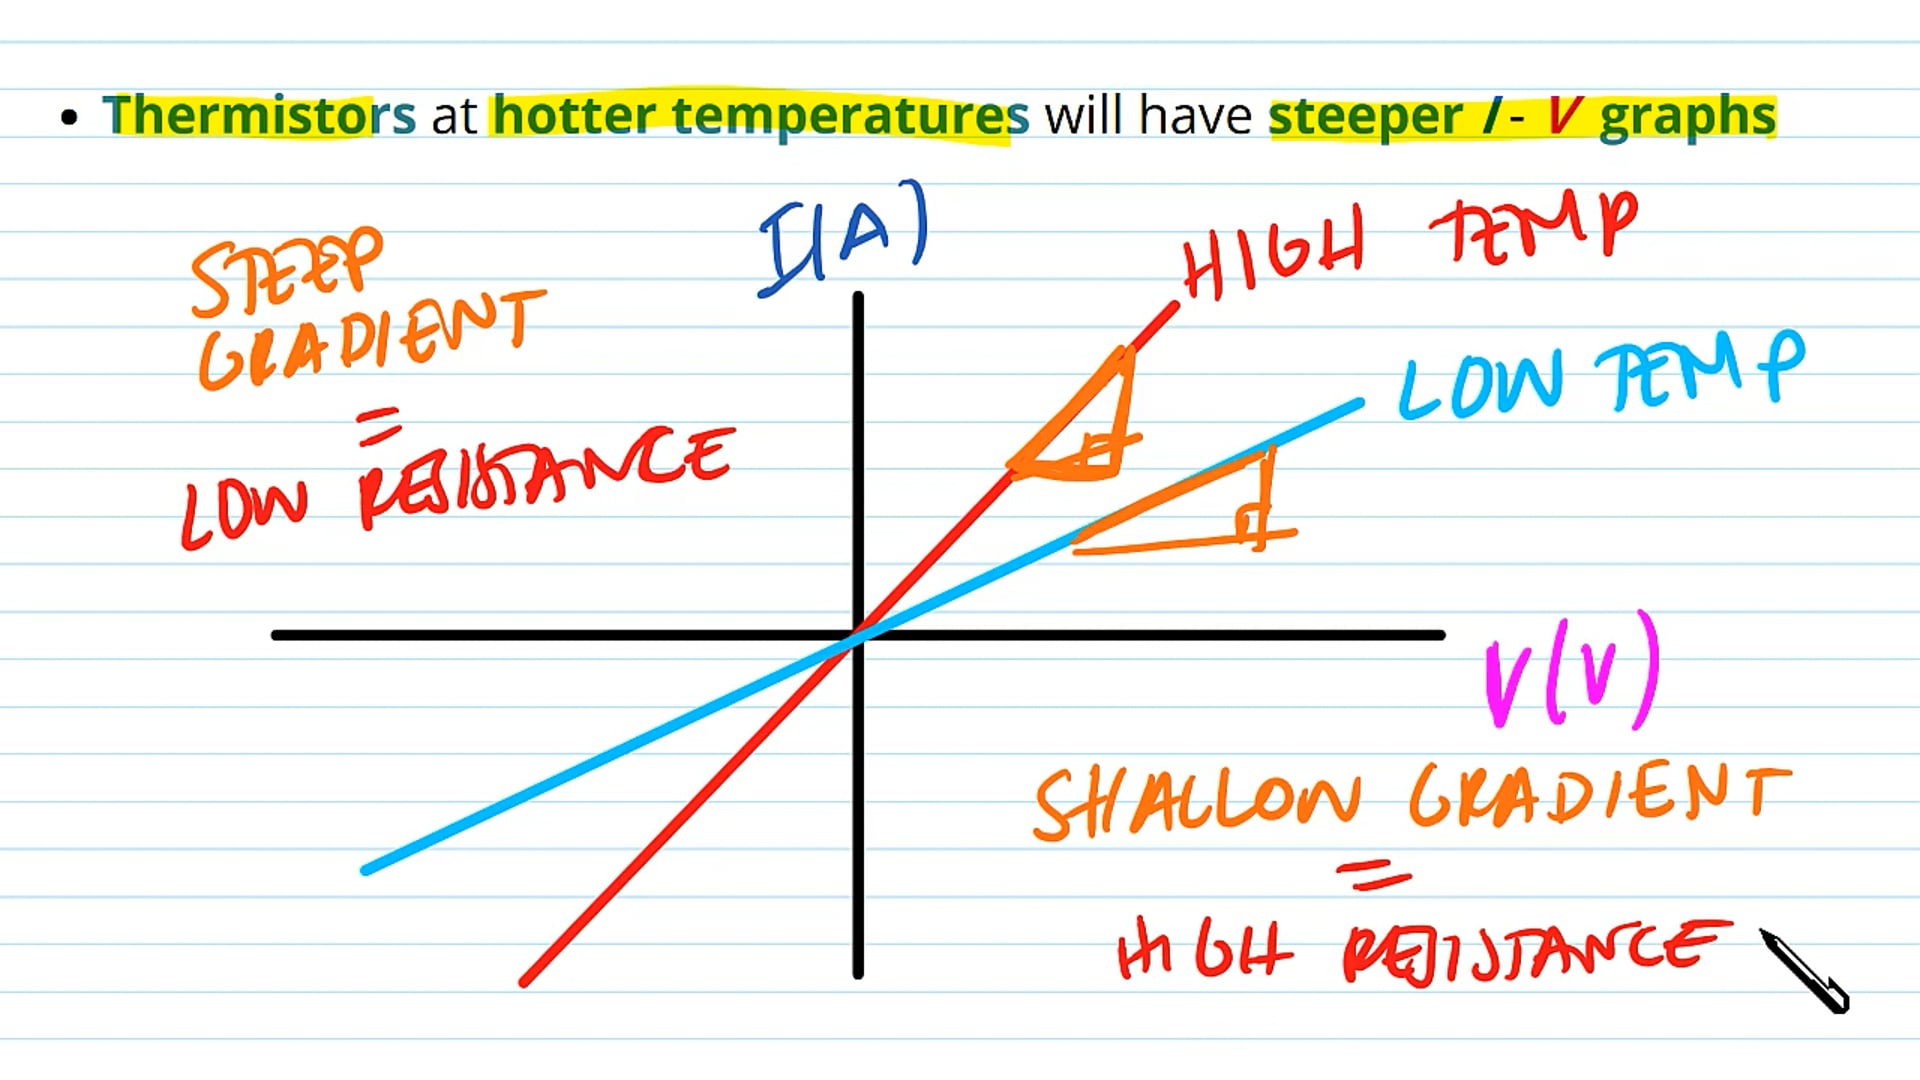 • Thermistors at hotter temperatures will have steeper I - V graphs
I(A)
HIGH TEMP
STEEP
GRADIENT
=
LOW RESISTANCE
LOW TEMP
V(V)
SHALLOW GRADIENT
=
HIGH RESISTANCE